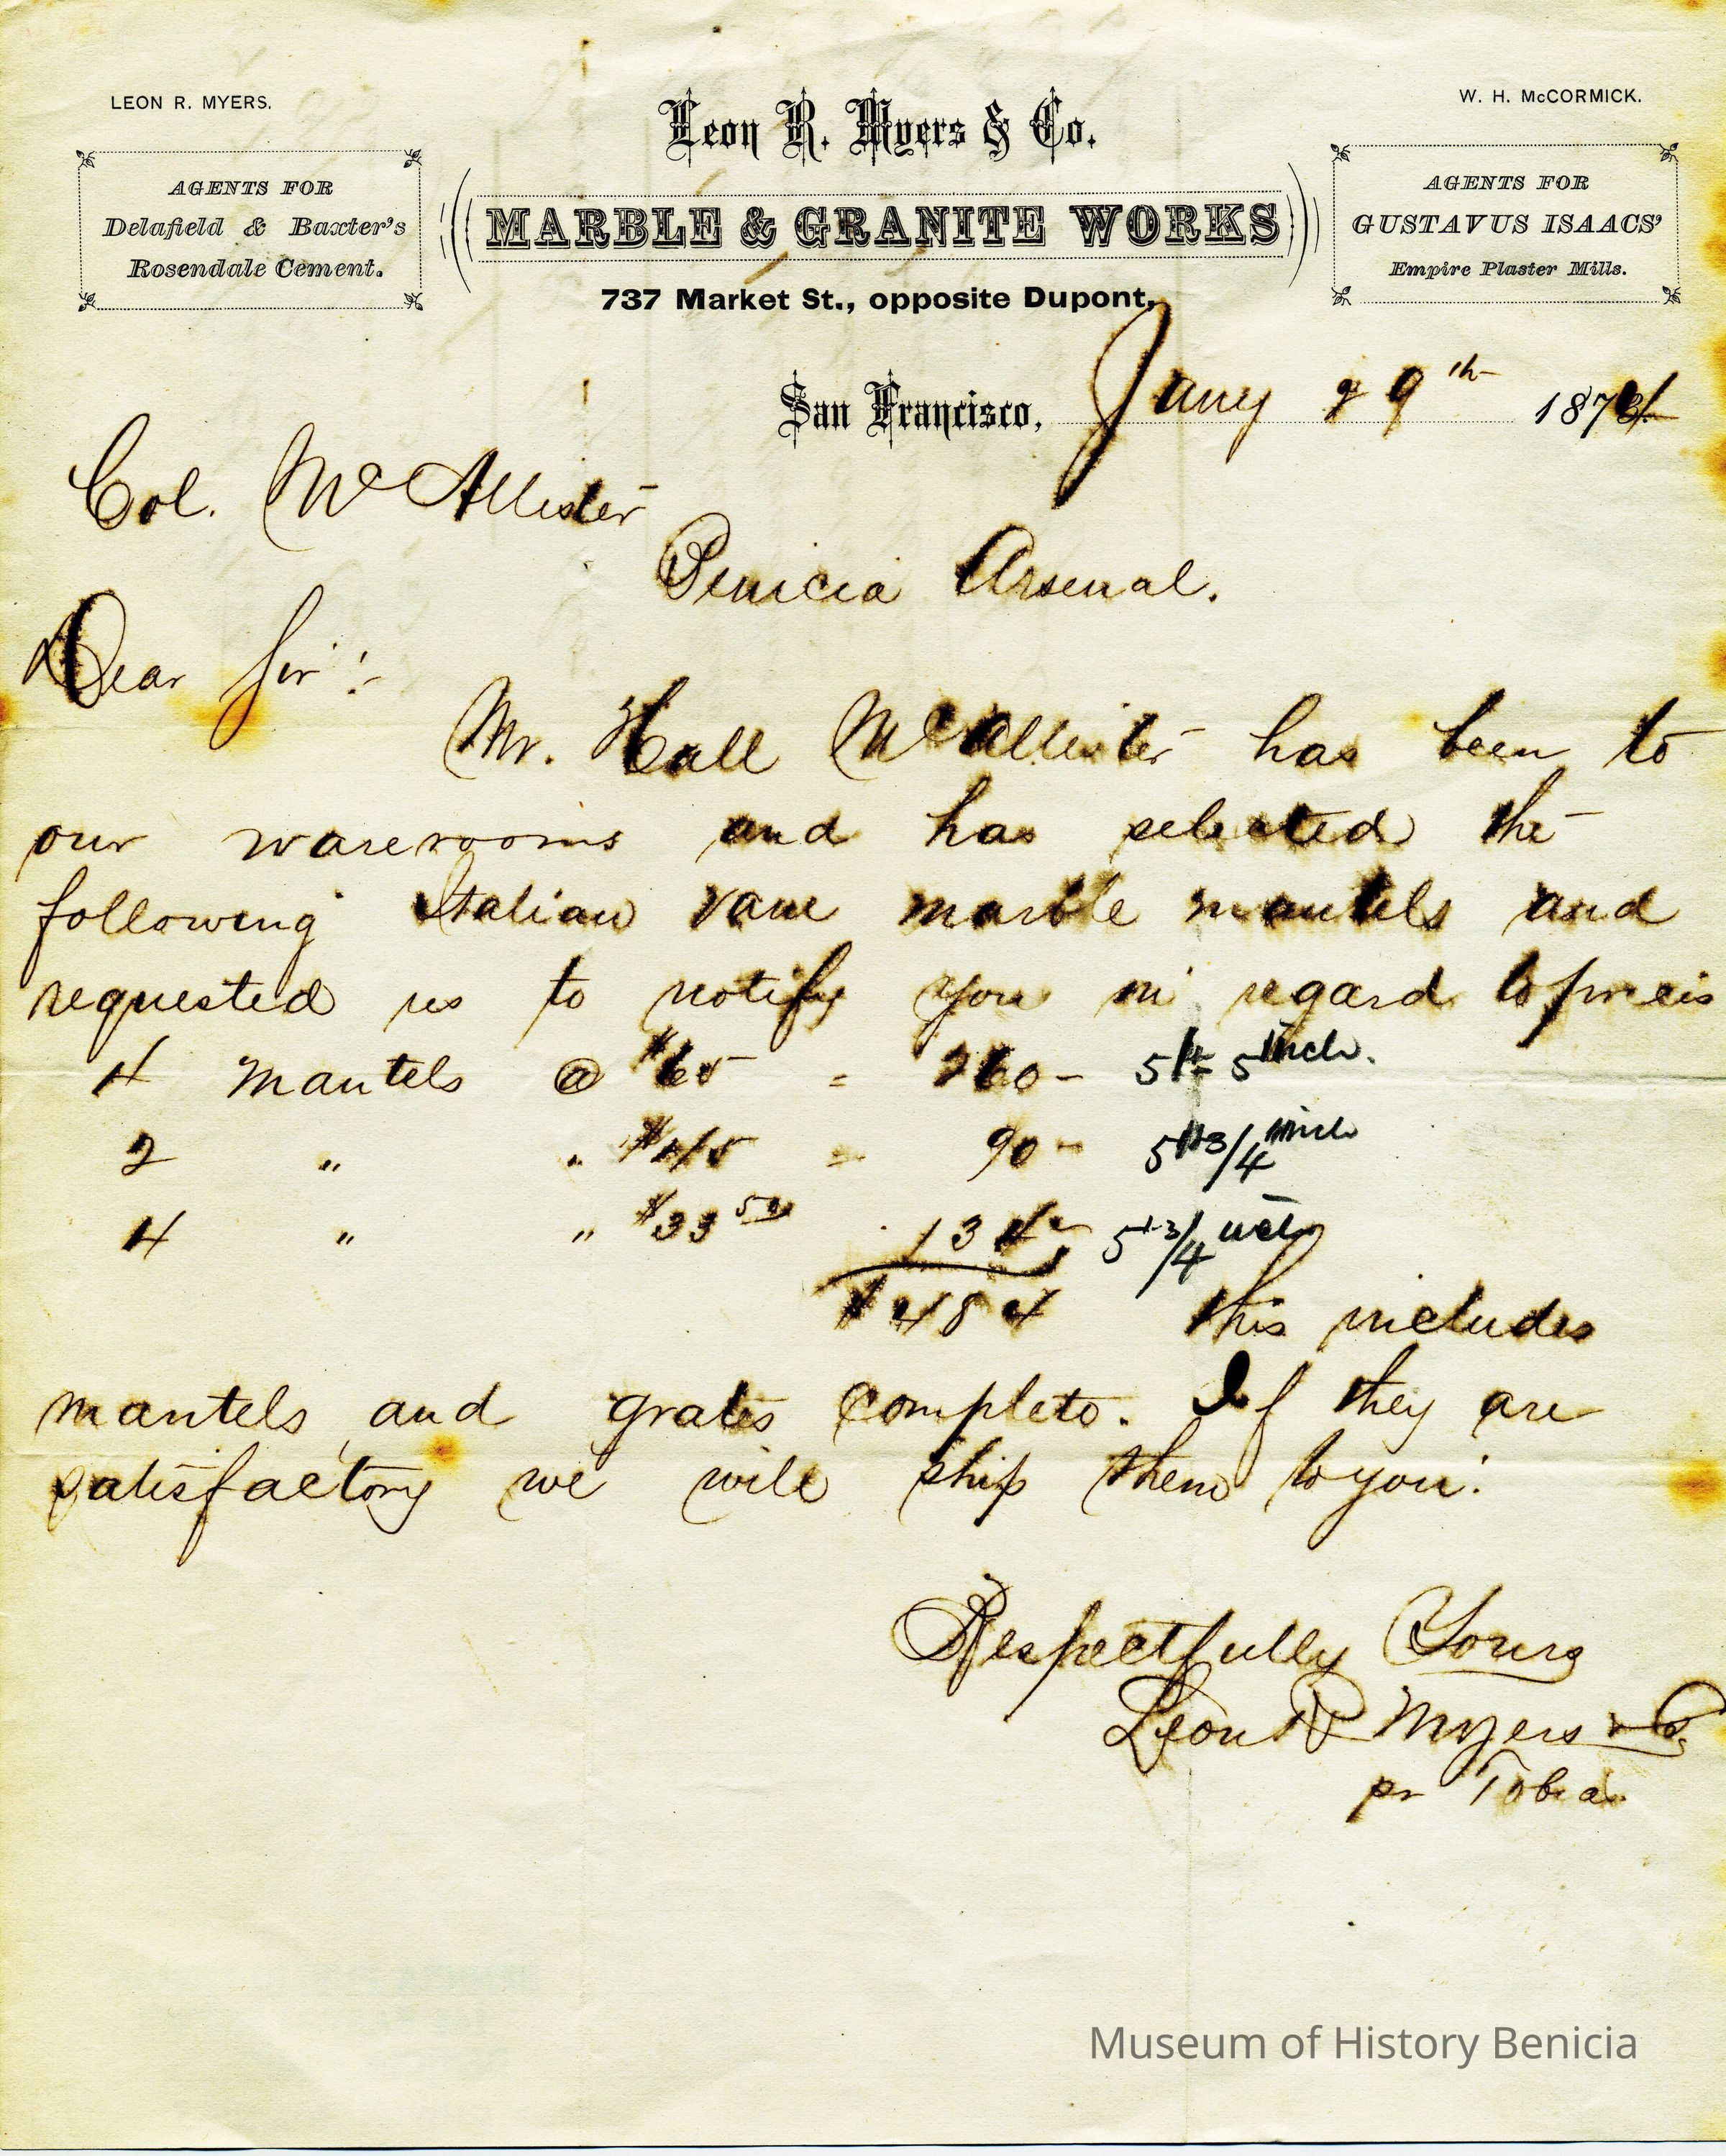 LEON R. MYERS.
W. H. McCORMICK.
Leon R. Myers & Co.
AGENTS FOR
Delafield & Baxter's
Rosendale Cement.
MARBLE & GRANITE WORKS
AGENTS FOR
GUSTAVUS ISAACS'
Empire Plaster Mills.
737 Market St., opposite Dupont,
San Francisco, Jany 29th 187
Col. McAllister
Benicia Arsenal.
Dear Sir:-
Mr. Hall McAllister has been to
our warerooms and has selected the
following Italian vane marble mantels and
requested us to notify you in regard to preis
4 Mantels @ $65 = 260- 5ft 5 inch.
2 " " $45 = 90- 5ft 3/4 inch
4 " " $33 50 134- 5ft 3/4 inch
$484 this includes
mantels and grates complete. If they are
satisfactory we will ship them to you.
Respectfully Yours
Leon R Myers & Co.
pr
Museum of History Benicia